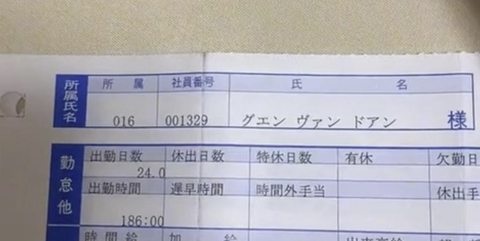 所属氏名
所属 社員番号 氏名
016 001329 グエン ヴァン ドアン 様
勤怠他
出勤日数 休出日数 特休日数 有休 欠勤日
24.0
出勤時間 遅早時間 時間外手当 休出手
186:00
時間給 加給